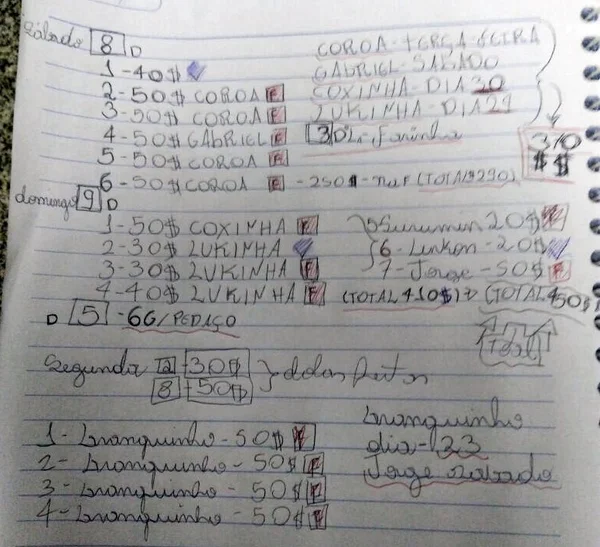 Sábado 8 D
COROA - TERÇA-FEIRA
1-40$
GABRIEL-SABADO
2-50$ COROA F
COXINHA-DIA 30
3-50$ COROA F
LUKINHA-DIA 21
4-50$ GABRIEL F
3 D
310 $$
5-50$ COROA F
6-50$ COROA F -250$-
domingo 9 D
1-50$ COXINHA F
5 Surumin 20$ F
2-30$ LUKINHA
6-Linkon-20$
3-30$ LUKINHA F
7-Jorge-50$ F
4-40$ LUKINHA F
D 5 -66/PEDAÇO
Segunda 2 -30$
8 -50$
1-branquinho-50$ F
2-branquinho-50$ F
3-branquinho-50$ F
4-branquinho-50$ F
branquinho
dia-23
Jorge sabado